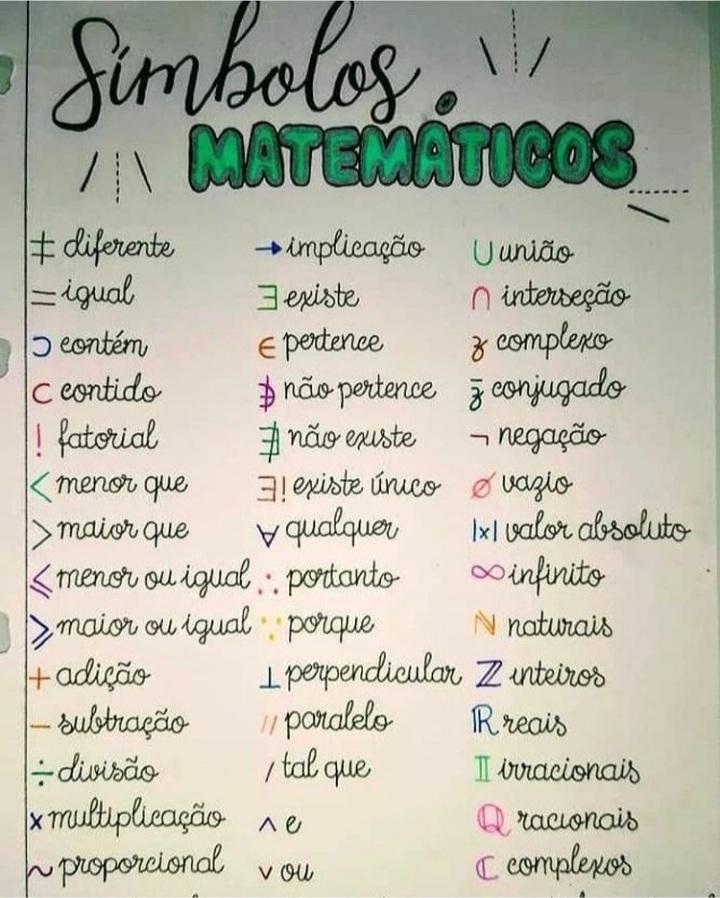 Símbolos
MATEMÁTICOS
≠ diferente
= igual
⊃ contém
⊂ contido
! fatorial
< menor que
> maior que
≤ menor ou igual
≥ maior ou igual
+ adição
− subtração
÷ divisão
x multiplicação
~ proporcional
→ implicação
∃ existe
∈ pertence
∉ não pertence
∄ não existe
∃! existe único
∀ qualquer
∴ portanto
∵ porque
⊥ perpendicular
// paralelo
/ tal que
∧ e
∨ ou
∪ união
∩ interseção
z complexo
z̄ conjugado
¬ negação
∅ vazio
|x| valor absoluto
∞ infinito
ℕ naturais
ℤ inteiros
ℝ reais
𝕀 irracionais
ℚ racionais
ℂ complexos